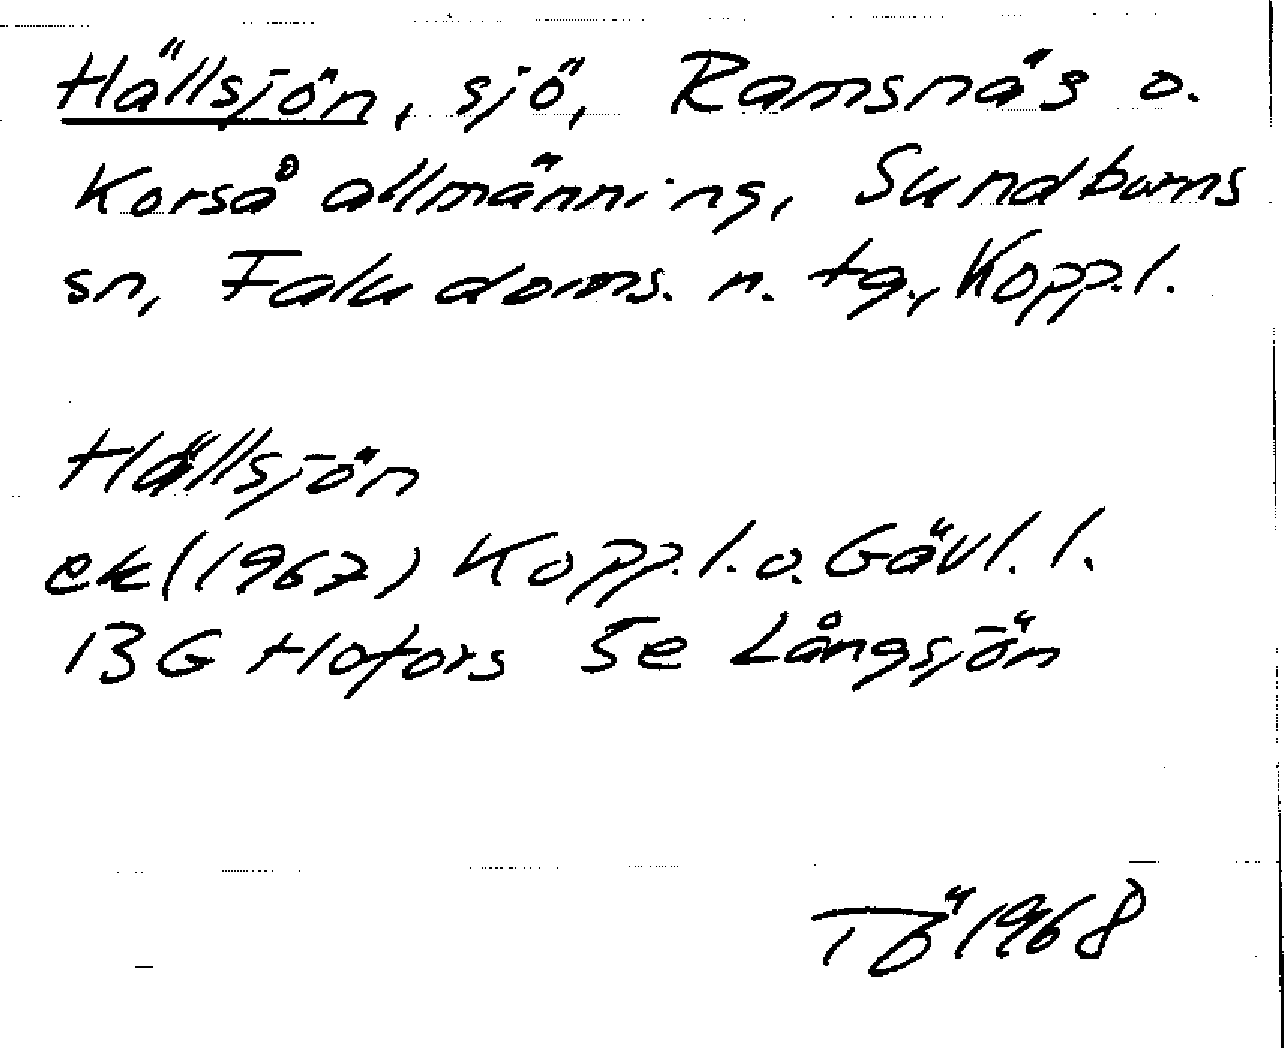 Hällsjön, sjö, Ramsnäs o.
Korså allmänning, Sundborns
sn, Falu doms. n. tg., Kopp.l.
Hällsjön
ek (1967) Kopp.l. o. Gävl. l.
13G Hofors 5e Långsjön
TÖ 1968